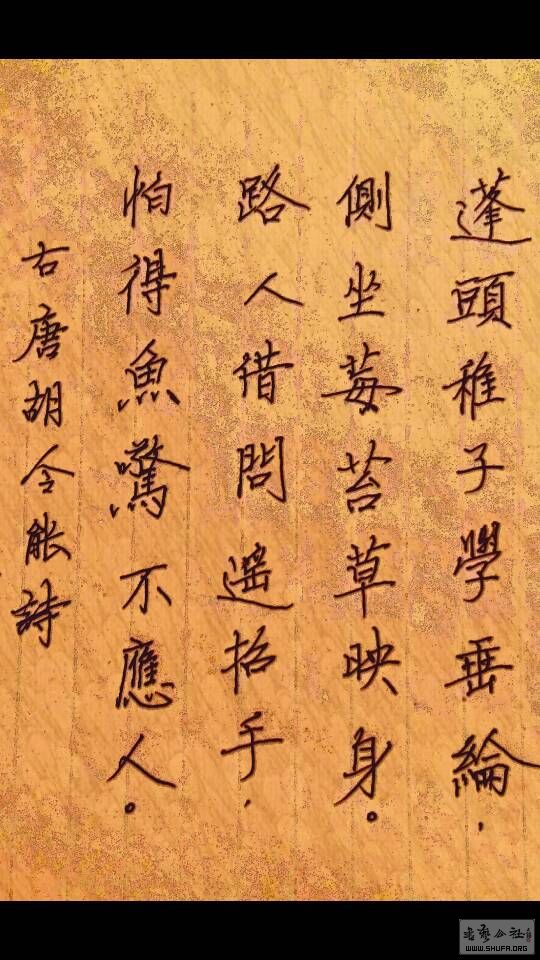 蓬頭稚子學垂綸，
側坐莓苔草映身。
路人借問遥招手，
怕得魚驚不應人。
右唐胡令能詩
WWW.SHUFA.ORG